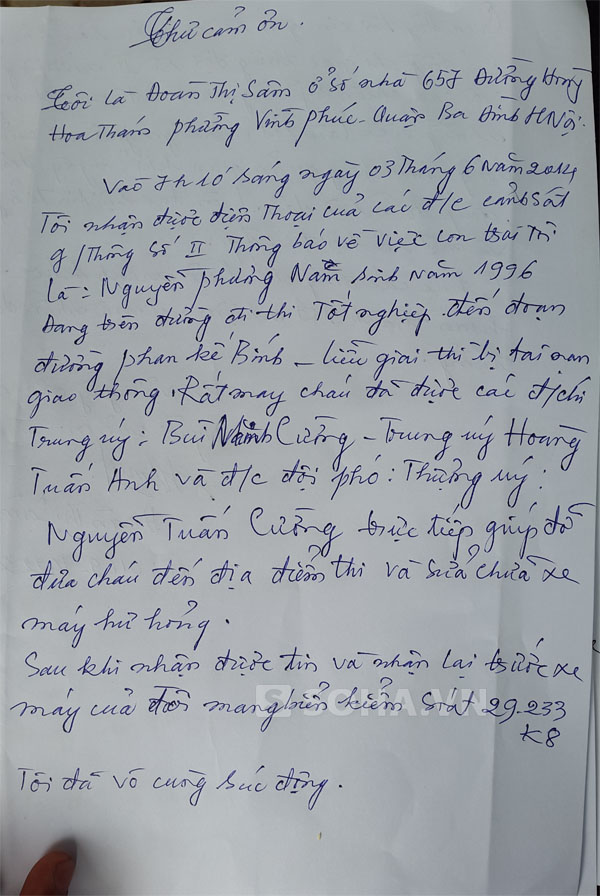 Thư cảm ơn.
Tôi là Đoàn Thị Sâm ở số nhà 657 Đường Hoàng
Hoa Thám phường Vĩnh Phúc - Quận Ba Đình HNội.
Vào 7h10 sáng ngày 03 Tháng 6 Năm 2014
Tôi nhận được điện Thoại của các đ/c cảnh sát
g/Thông số II Thông báo về việc con trai Tôi
là: Nguyễn phương Nam sinh năm 1996
Đang trên đường đi thi Tốt nghiệp đến đoạn
đường phan kế Bính - liễu giai thì bị tai nạn
giao thông. Rất may cháu đã được các đ/chí
Trung úy: Bùi Cường - Trung úy Hoàng
Tuấn Anh và đ/c đội phó: Thượng úy:
Nguyễn Tuấn Cường trực tiếp giúp đỡ
đưa cháu đến địa điểm thi và sửa chữa xe
máy hư hỏng.
Sau khi nhận được tin và nhận lại trước xe
máy của tôi mang biển kiểm soát 29-233
K8
Tôi đã vô cùng xúc động.
SOHA.VN